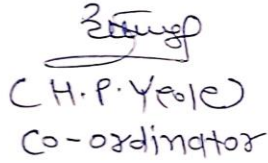 (H.P.Yeole)
Co-ordinator